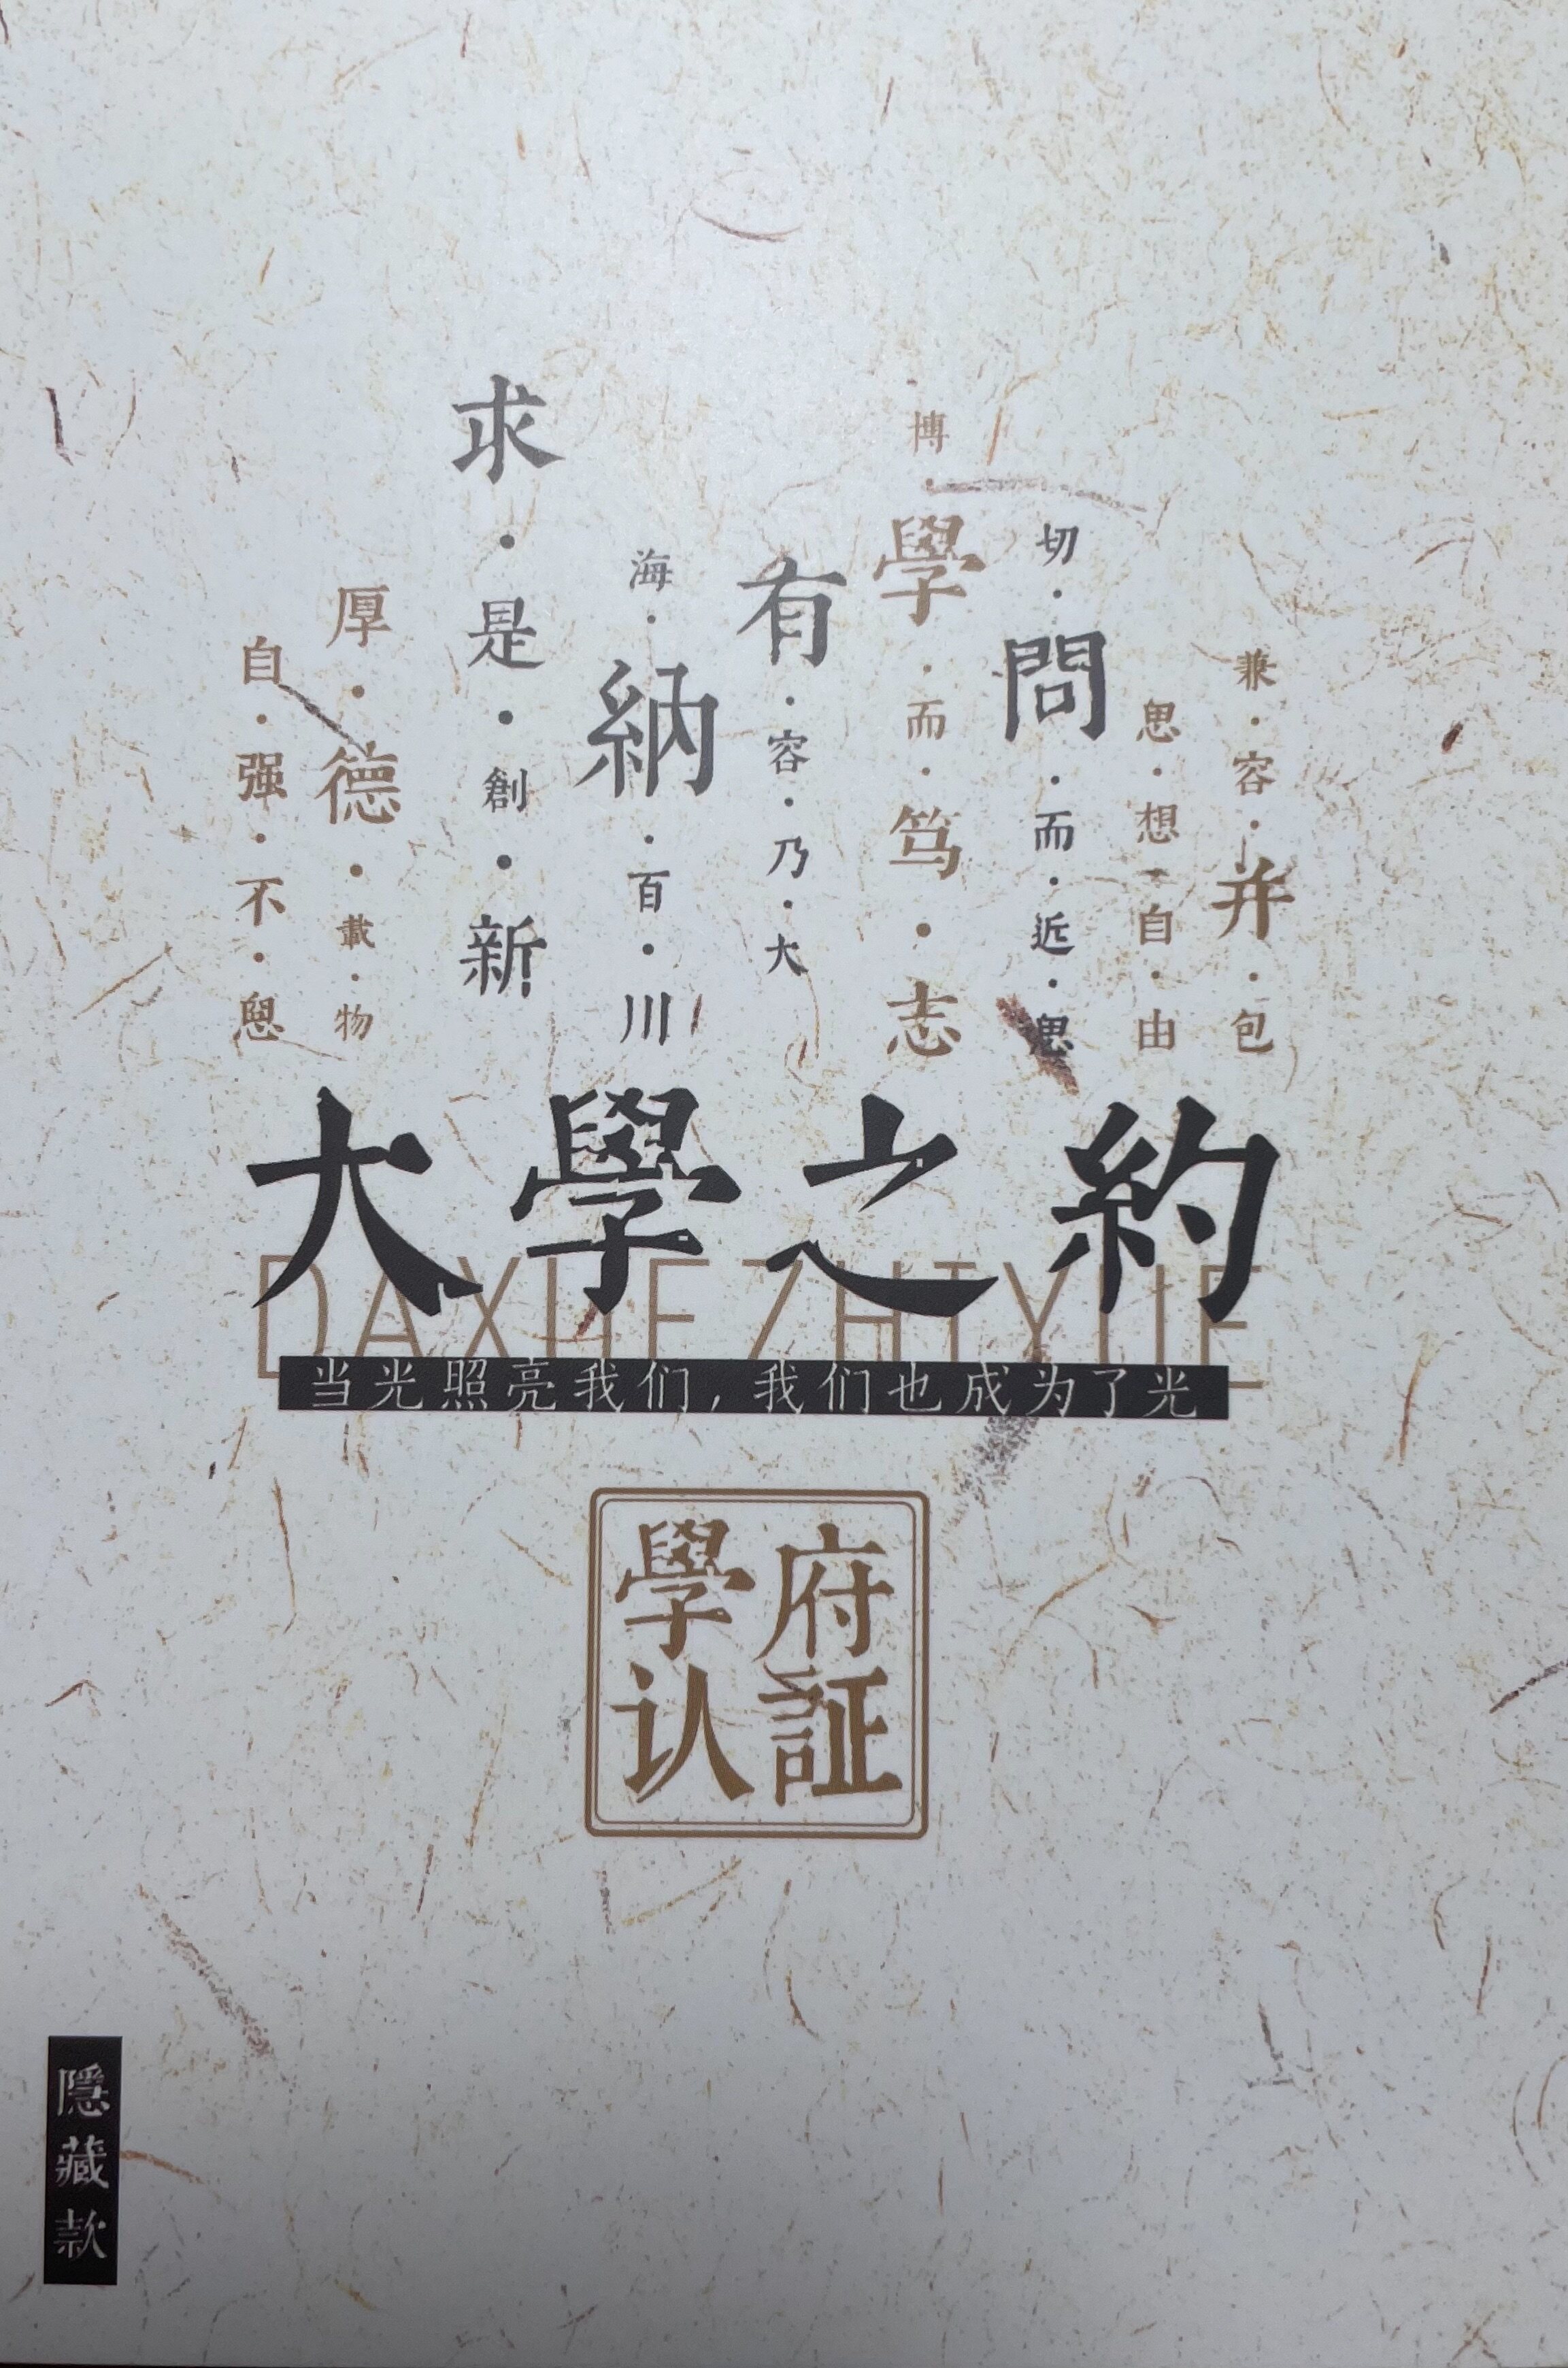 自·强·不·息
厚·德·載·物
求·是·創·新
海·納·百·川
有·容·乃·大
博·學·而·笃·志
切·問·而·近·思
思·想·自·由
兼·容·并·包
大學之約
DAXUE ZHI YUE
当光照亮我们,我们也成为了光
學府
认証
隱藏款